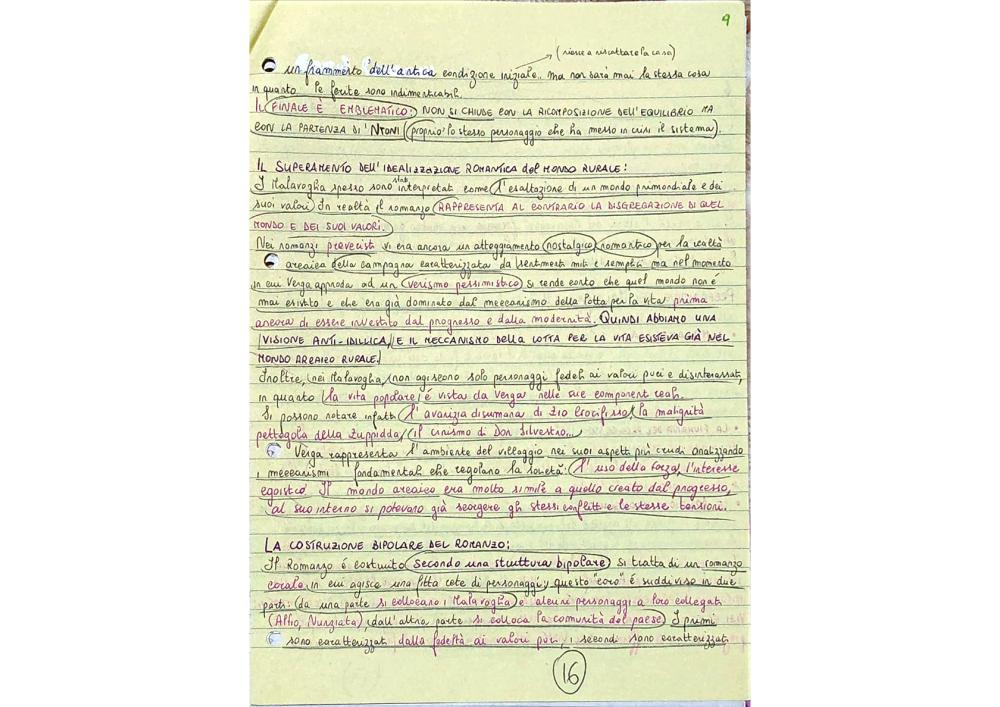 9
(riesce a riscattare la casa)
un frammento dell'antica condizione iniziale.. ma non sarà mai la stessa cosa
in quanto le ferite sono indimenticabili.
IL FINALE È EMBLEMATICO: NON SI CHIUDE CON LA RICOMPOSIZIONE DELL'EQUILIBRIO MA
CON LA PARTENZA DI 'NTONI (proprio lo stesso personaggio che ha messo in crisi il sistema).
IL SUPERAMENTO DELL'IDEALIZZAZIONE ROMANTICA del MONDO RURALE:
I Malavoglia spesso sono stati interpretati come l'esaltazione di un mondo primordiale e dei
suoi valori. In realtà il romanzo RAPPRESENTA AL CONTRARIO LA DISGREGAZIONE DI QUEL
MONDO E DEI SUOI VALORI.
Nei romanzi preveristi vi era ancora un atteggiamento nostalgico, romantico per la realtà
arcaica della campagna caratterizzata da sentimenti miti e semplici ma nel momento
in cui Verga approda ad un verismo pessimistico si rende conto che quel mondo non è
mai esistito e che era già dominato dal meccanismo della lotta per la vita prima
ancora di essere investito dal progresso e dalla modernità. QUINDI ABBIAMO UNA
VISIONE ANTI-IDILLICA, E IL MECCANISMO DELLA LOTTA PER LA VITA ESISTEVA GIÀ NEL
MONDO ARCAICO RURALE.
Inoltre, nei Malavoglia, non agiscono solo personaggi fedeli ai valori puri e disinteressati,
in quanto la vita popolare è vista da Verga nelle sue componenti reali.
Si possono notare infatti l'avarizia disumana di zio Crocifisso, la malignità
pettegola della Zuppidda, il cinismo di Don Silvestro...
Verga rappresenta l'ambiente del villaggio nei suoi aspetti più crudi analizzando
i meccanismi fondamentali che regolano la società: l'uso della forza, l'interesse
egoistico. Il mondo arcaico era molto simile a quello creato dal progresso,
al suo interno si potevano già scorgere gli stessi conflitti e le stesse tensioni.
LA COSTRUZIONE BIPOLARE DEL ROMANZO:
Il Romanzo è costruito secondo una struttura bipolare si tratta di un romanzo
corale in cui agisce una fitta rete di personaggi, questo "coro" è suddiviso in due
parti: da una parte si collocano i Malavoglia e alcuni personaggi a loro collegati
(Alfio, Nunziata), dall'altra parte si colloca la comunità del paese. I primi
sono caratterizzati dalla fedeltà ai valori puri, i secondi sono caratterizzati
16